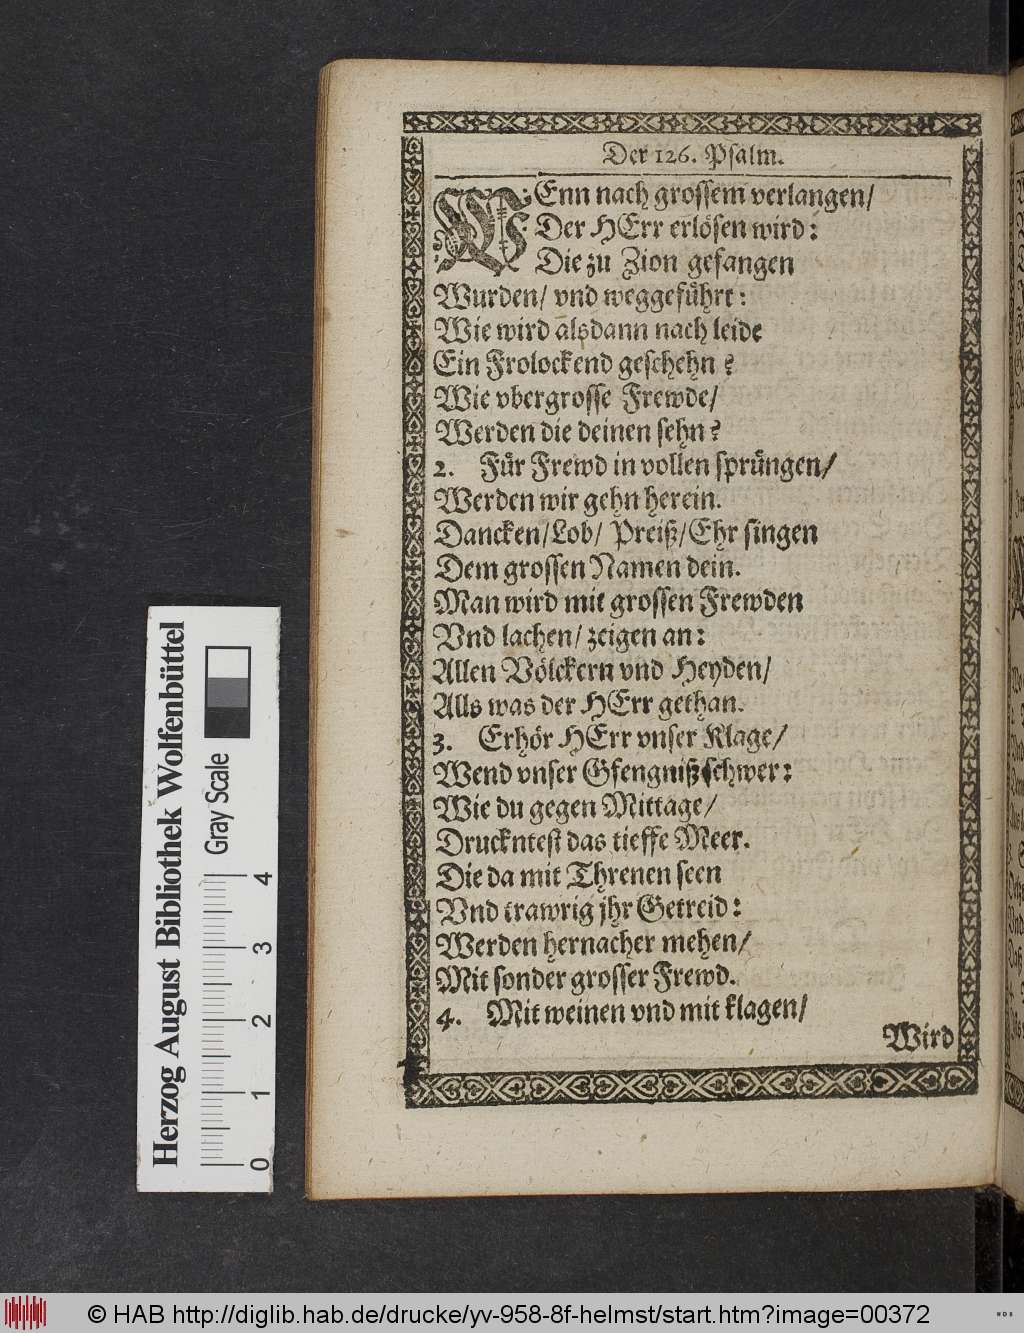 Der 126. Psalm.
WEnn nach grossem verlangen/
Der HErr erlösen wird:
Die zu Zion gefangen
Wurden/ vnd weggeführt:
Wie wird alsdann nach leide
Ein Frolockend geschehn?
Wie vbergrosse Frewde/
Werden die deinen sehn?
2. Für Frewd in vollen sprüngen/
Werden wir gehn herein.
Dancken/Lob/ Preiß/Ehr singen
Dem grossen Namen dein.
Man wird mit grossen Frewden
Vnd lachen/ zeigen an:
Allen Völckern vnd Heyden/
Alls was der HErr gethan.
3. Erhör HErr vnser Klage/
Wend vnser Gfengniß schwer:
Wie du gegen Mittage/
Druckntest das tieffe Meer.
Die da mit Threnen seen
Vnd trawrig jhr Getreid:
Werden hernacher mehen/
Mit sonder grosser Frewd.
4. Mit weinen vnd mit klagen/
Wird
Herzog August Bibliothek Wolfenbüttel
Gray Scale
0 1 2 3 4
© HAB http://diglib.hab.de/drucke/yv-958-8f-helmst/start.htm?image=00372